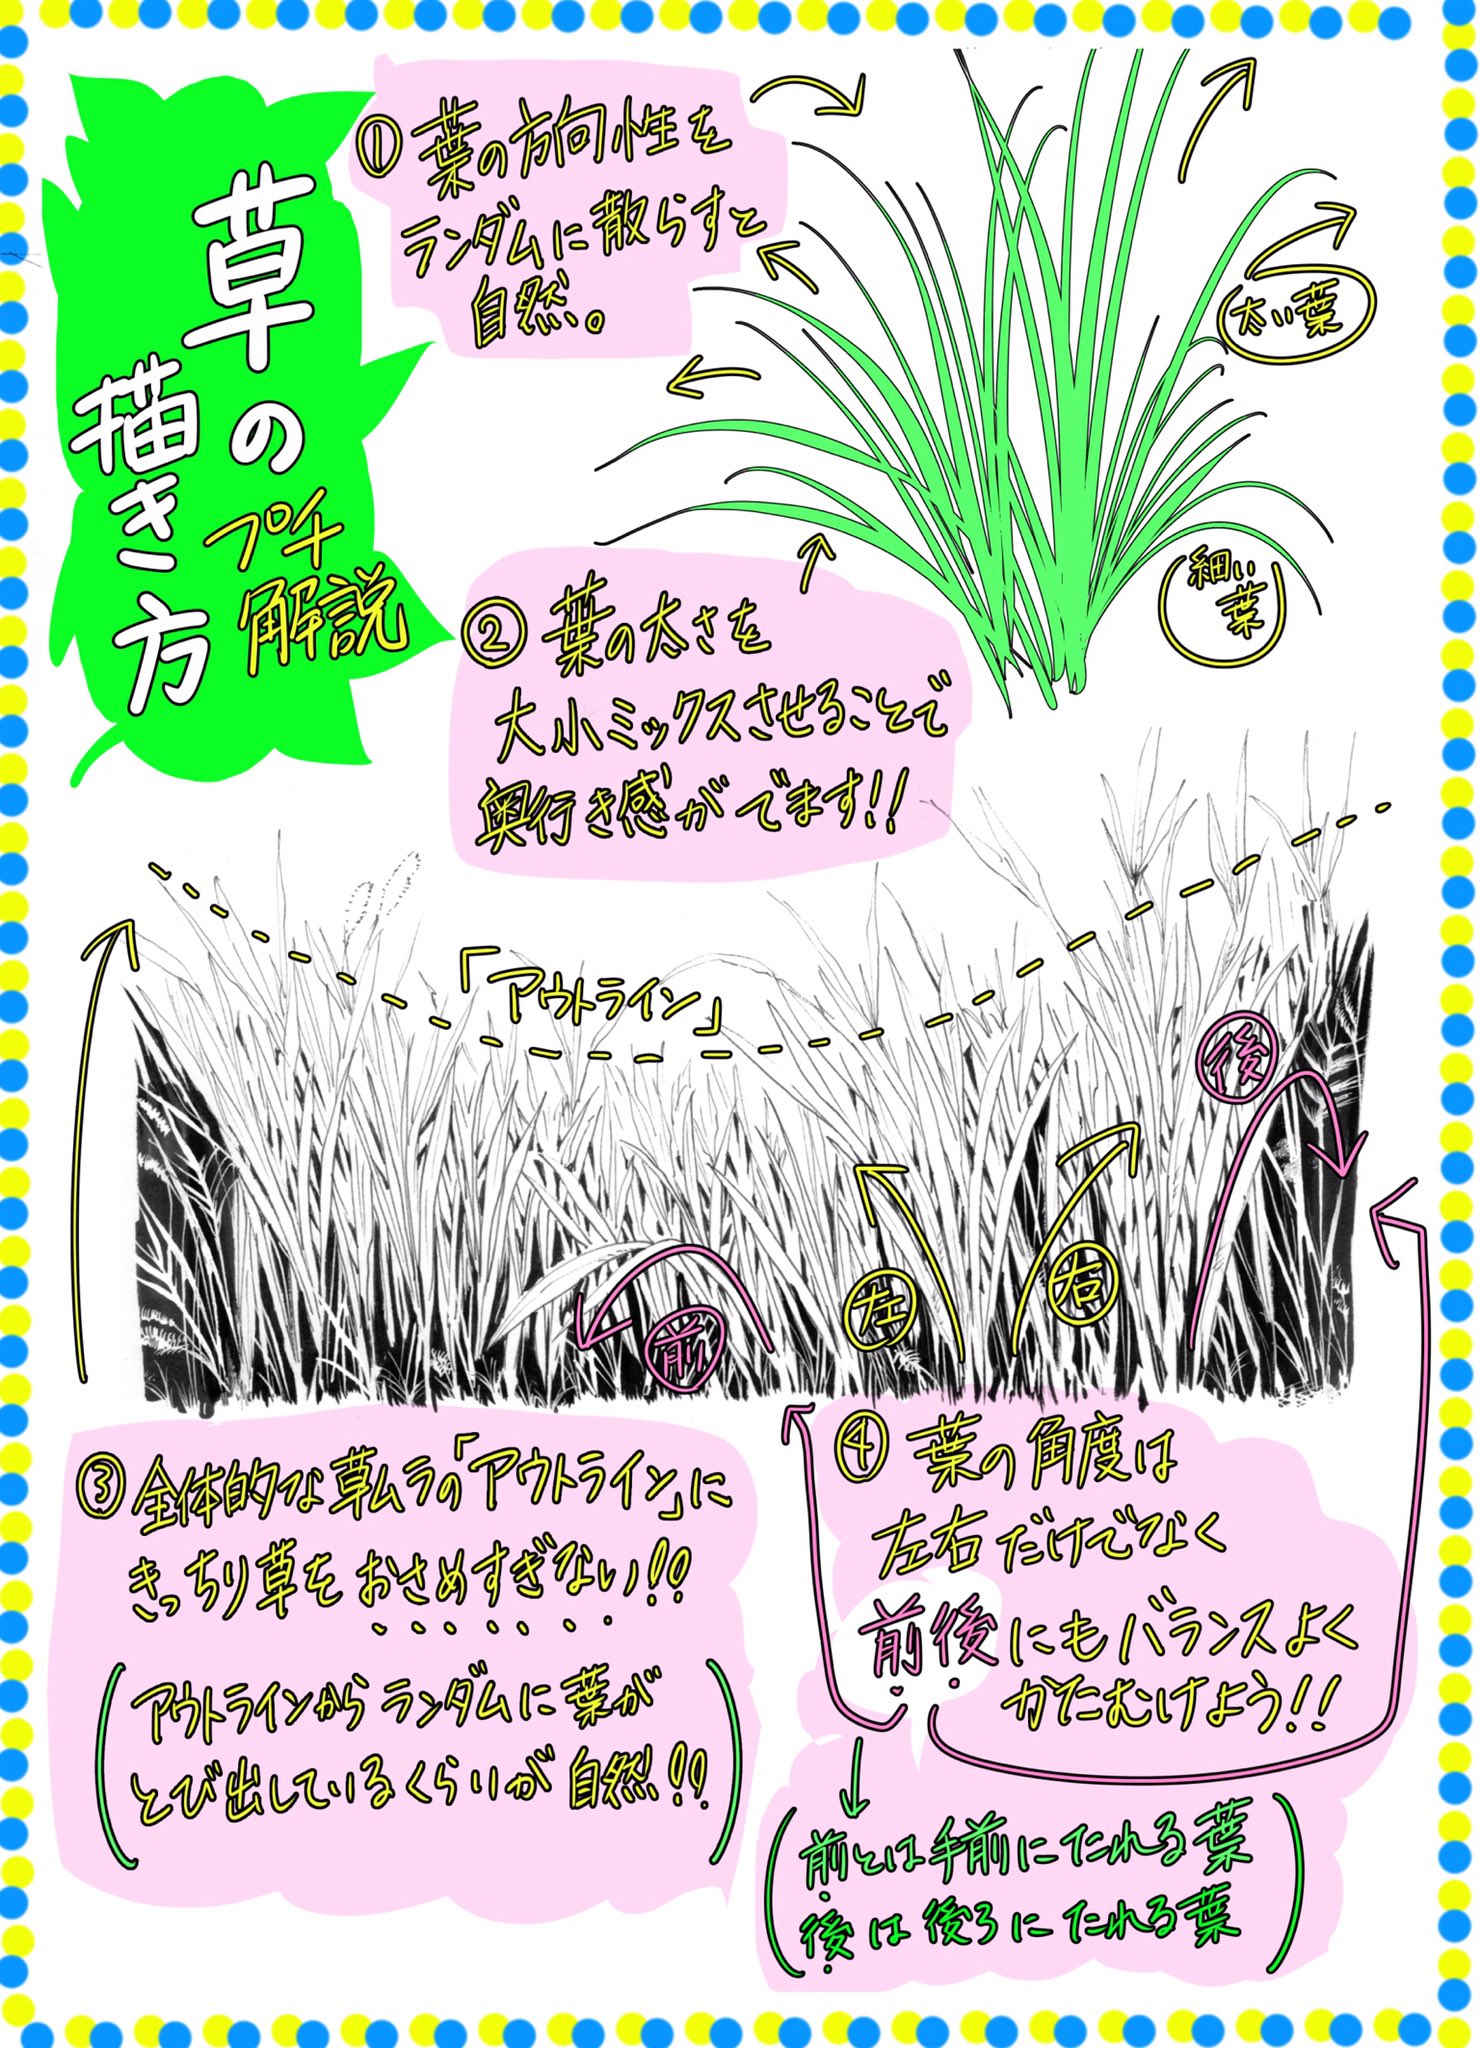 草の
描き方
プチ
解説
① 葉の方向性を
ランダムに散らすと
自然。
太い葉
細い
葉
② 葉の太さを
大小ミックスさせることで
奥行き感がでます!!
「アウトライン」
後
前
左
右
③ 全体的な草ムラの「アウトライン」に
きっちり草をおさめすぎない!!
(アウトラインからランダムに葉が
とび出しているくらいが自然!!)
④ 葉の角度は
左右だけでなく
前後にもバランスよく
かたむけよう!!
(前とは手前にたれる葉
後は後ろにたれる葉)